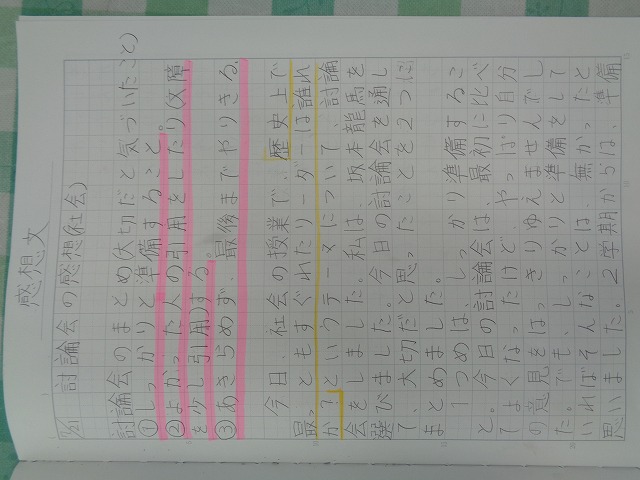 感想文
7/21 討論会の感想(社会)
討論会のまとめ(大切だと気づいたこと)
①しっかりと準備すること。
②よかった人の引用をしたり(文章
を少し引用)する。
③あきらめず、最後までやりきる。
今日、社会の授業で、歴史上で
最っともすぐれたリーダーは誰れ
か?というテーマについて、討論
会をしました。私は、坂本龍馬を
選びました。今日の討論会を通し
て、大切だと思ったことを2つに
まとめました。
1つめは、しっかり準備するこ
と。今日の討論会は、最初に比べ
てよくなったけど、やっぱり自分
の意見をはっきりゆえませんでし
た。でも、しっかりと準備をして
いればそんなことは、無かったと
思いました。2学期からは、準備